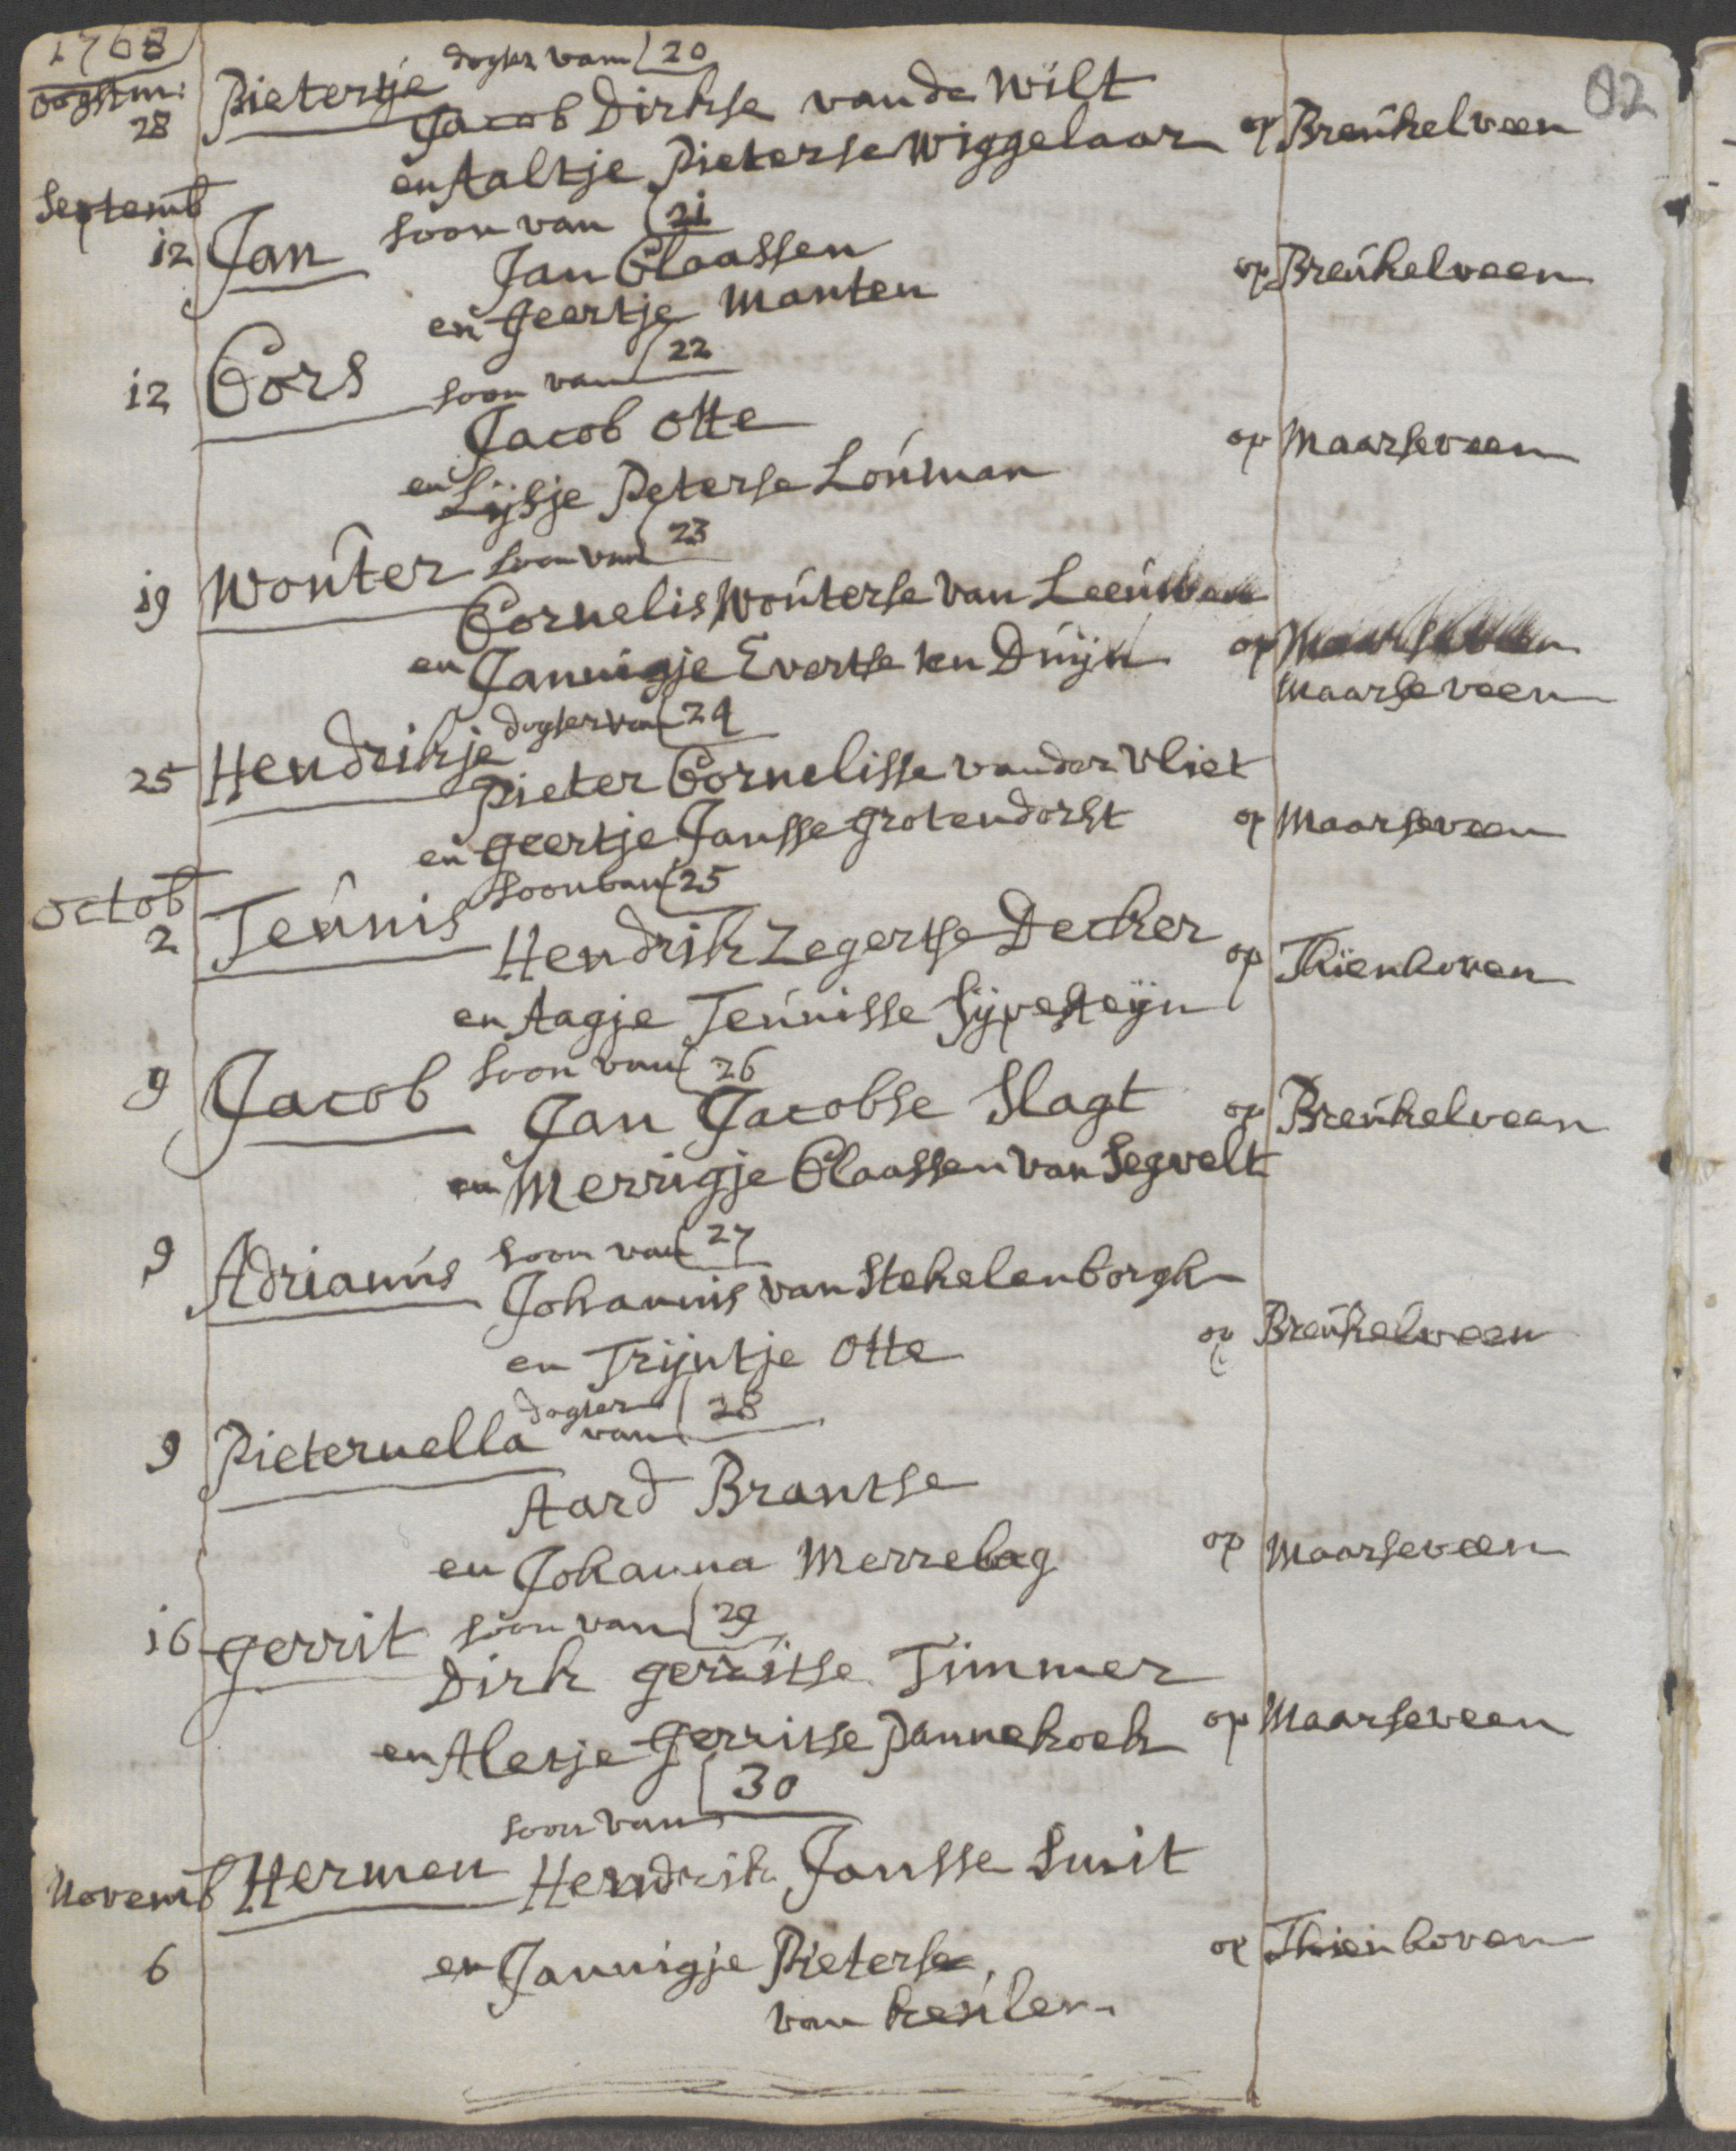 1768
82
oogstm:
dogter van 20
28 Pietertje
Jacob Dirkse van de Wilt
en Aaltje Pieterse Wiggelaar op Breúkelveen
Septemb
soon van 21
12 Jan
Jan Claassen
en Geertje Manten op Breúkelveen
12 Cors soon van 22
Jacob Otte
en Lijsje Peterse Loúman op Maarseveen
19 Woúter soon van 23
Cornelis Woúterse van Leeúwen
en Jannigje Evertse ten Dúijn op
Maarseveen
25 Hendrikje dogter van 24
Pieter Cornelisse van der Vliet
en Geertje Jansse Grotendorst op Maarseveen
octob
soon van 25
2 Teúnis
Hendrik Zegertse Decker op Thienhoven
en Aagje Teúnisse Sijpesteijn
9 Jacob soon van 26
Jan Jacobse Slagt op Breúkelveen
en Merrigje Claassen van Segvelt
9 Adrianús soon van 27
Johannis van Stekelenborgh
en Trijntje Otte op Breúkelveen
9 Pieternella dogter van 28
Aard Brantse
en Johanna op Maarseveen
16 gerrit soon van 29
Dirk gerritse Timmer
en Aletje Gerritse Pannekoek op Maarseveen
soon van 30
Novemb Hermen Hendrik Jansse Smit
6 en Jannigje Pieterse op Thienhoven
van keúlen